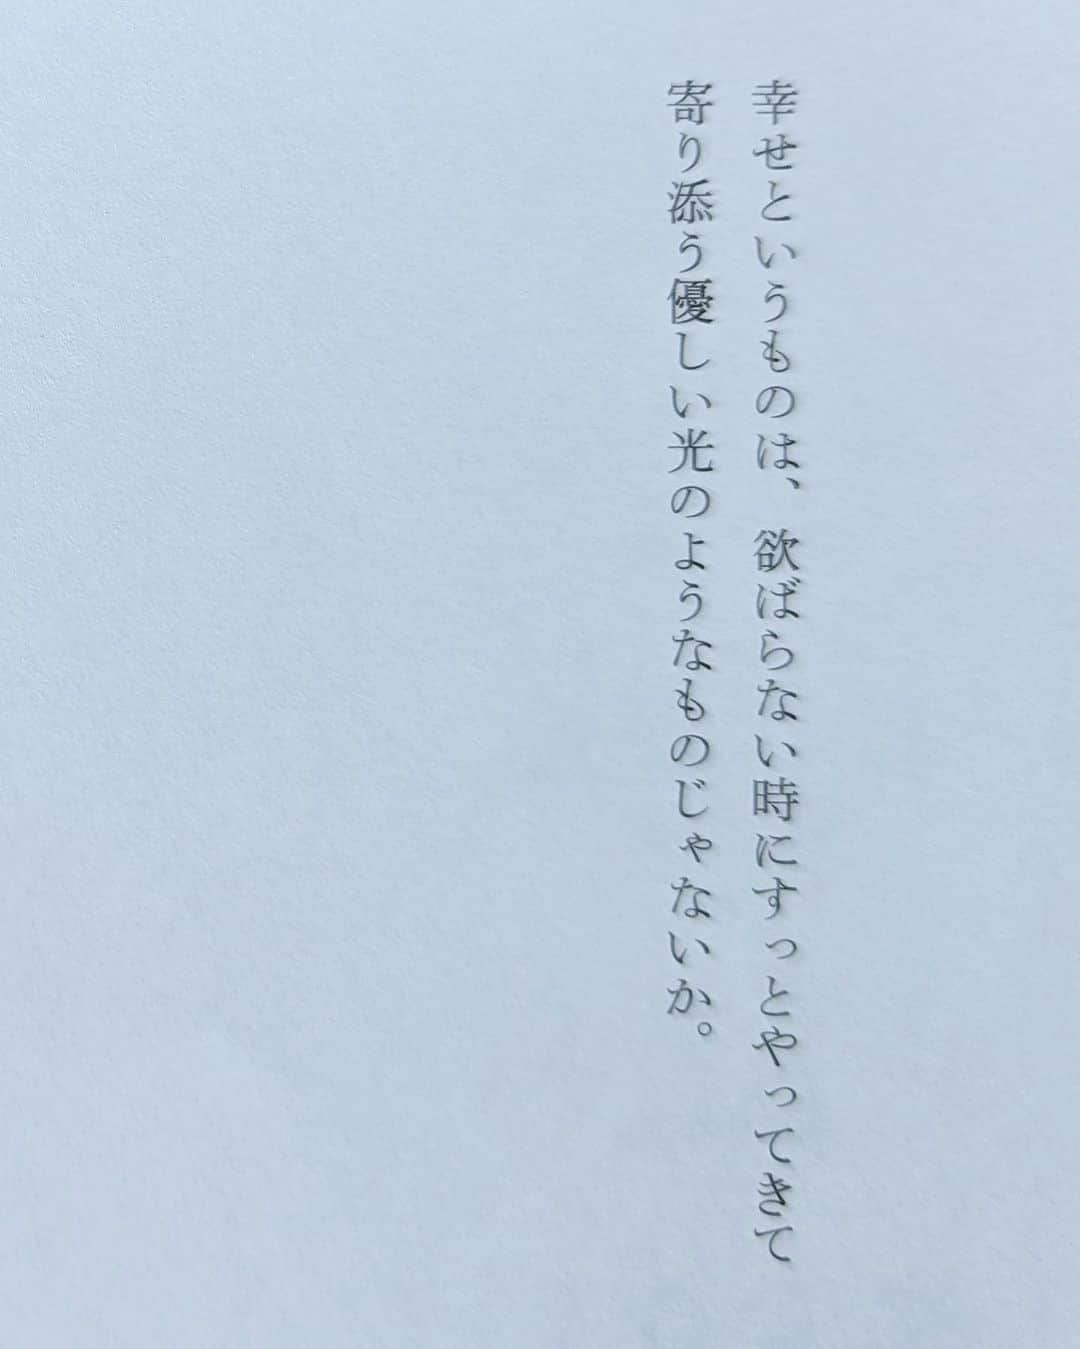 幸せというものは、欲ばらない時にすっとやってきて
寄り添う優しい光のようなものじゃないか。